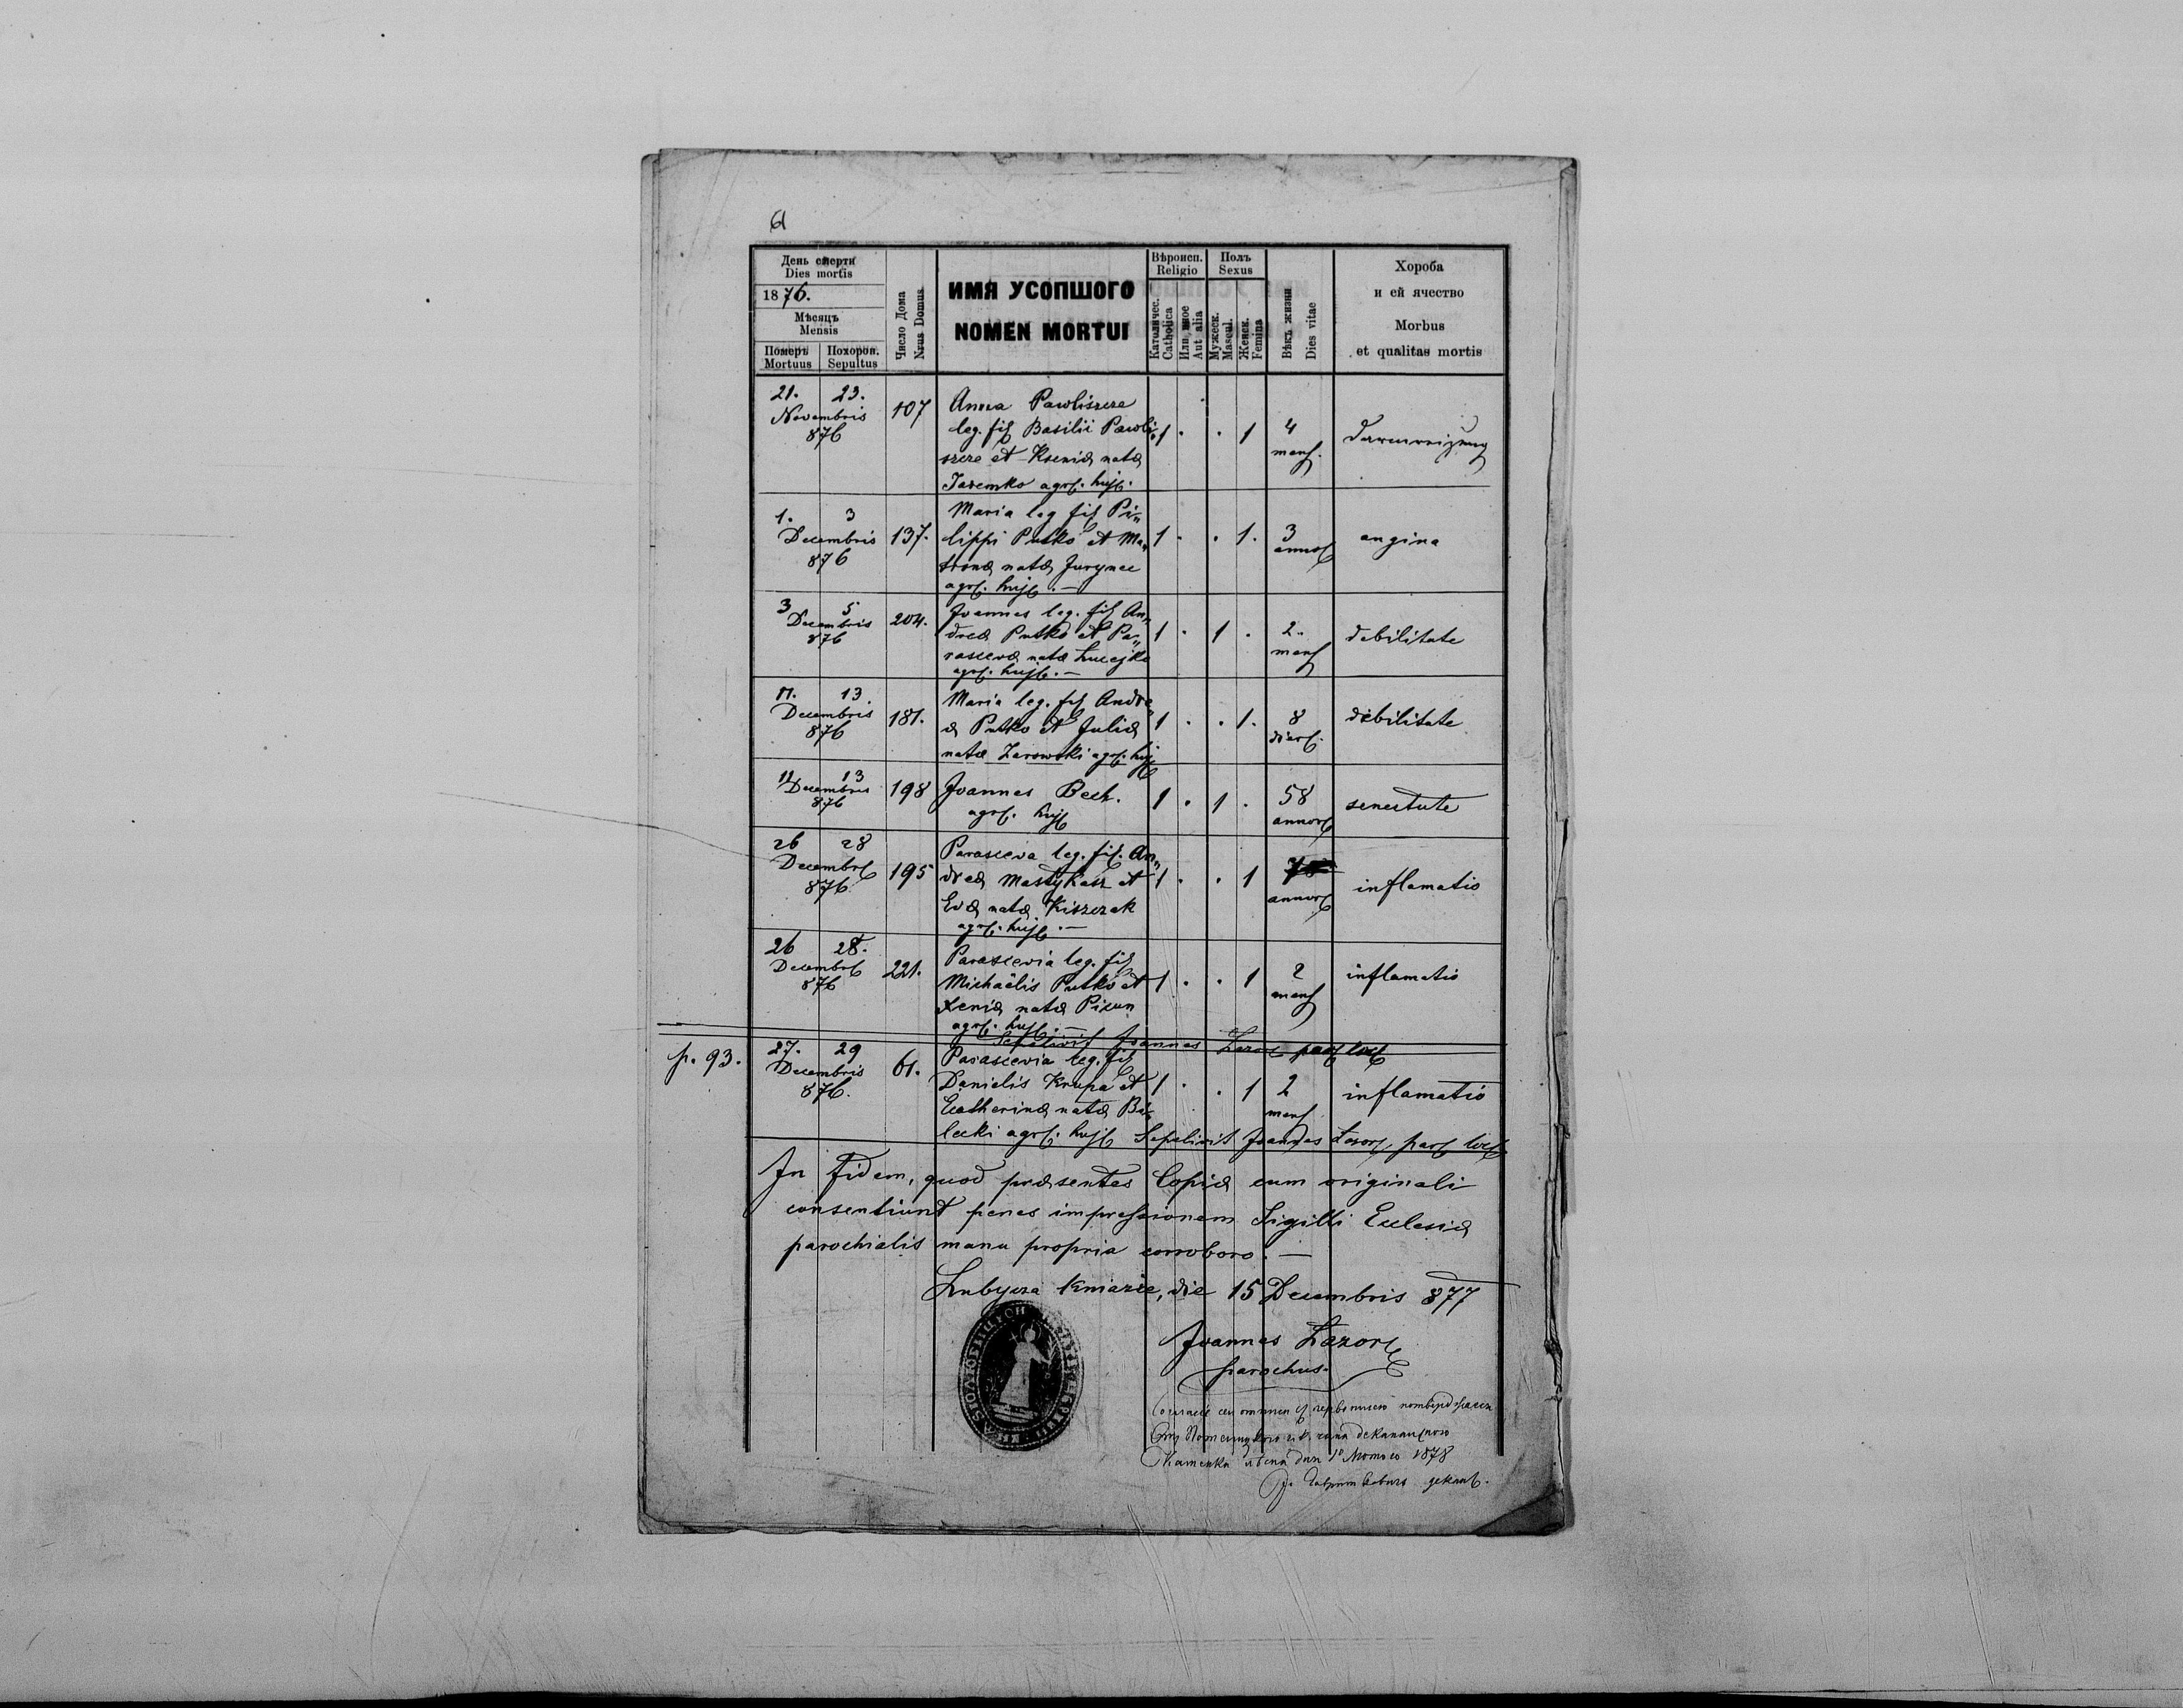 61
День смерти
Dies mortis
1876.
Мѣсяцъ
Mensis
Померъ
Mortuus
Похорон.
Sepultus
Число Дома
Nrus Domus
ИМЯ УСОПШОГО
NOMEN MORTUI
Вѣроисп.
Religio
Католичес.
Catholica
Или иное
Aut alia
Полъ
Sexus
Мужеск.
Mascul.
Женск.
Femina
Вѣкъ жизни
Dies vitae
Хороба
и ей ячество
Morbus
et qualitas mortis
21. 23.
Novembris
876
107
Anna Pawliszcze
leg. fil Basilii Pawli„
szcze et Kseniæ natæ
Jaremko agr. huj.
1 . . 1
4
mens.
1. 3
Decembris
876
137.
Maria leg fil Pi„
lippi Putko et Ma„
tronæ natæ Jurynec
agr. huj. —
1 . . 1.
3
annor
angina
3 5
Decembris
876
204.
Joannes leg. fil An„
dreæ Putko et Pa„
rascevæ natæ Lucejko
agr. huj. —
1 . 1 .
2.
mens
debilitate
11. 13.
Decembris
876
181.
Maria leg. fil Andre„
æ Putko et Juliæ
natæ Zarowski agr. huj
1 . . 1.
8
dier.
debilitate
11 13
Decembris
876
198
Joannes Bech.
agr. huj
1 . 1 .
58
annor
senectute
26 28
Decembr
876.
195
Parasceva leg. fil. An„
dreæ Mastykasz et
Evæ natæ Kiszczak
agr. huj. —
1 . . 1
annor
inflamatio
26 28.
Decembr
876
221.
Parascevia leg. fil
Michaëlis Putko et
Xeniæ natæ Pizun
agr. huj. —
1 . . 1
2
mens
inflamatio
Sepelivit Joannes Lazor par loc
p. 93.
27. 29
Decembris
876.
61.
Parascevia leg. fil
Danielis Krupa et
Catherinæ natæ Bi„
lecki agr. huj
1 . . 1
2
mens
inflamatio
Sepelivit Joannes Lazor, par loc
In fidem, quod præsentes Copiæ cum originali
consentiunt penes impressionem Sigilli Eclesiæ
parochialis manu propria corroboro. —
Lubycza Kniazie, die 15 Decembris 877
Joannes Lazor
parochus.
1878
декан.